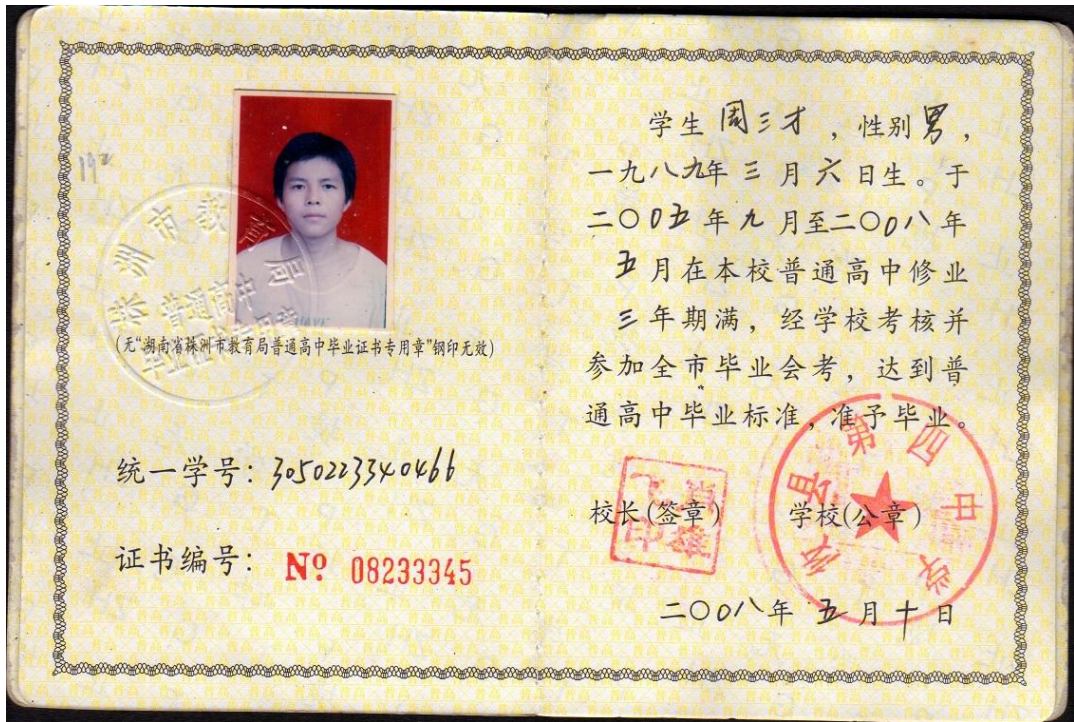 192
株洲市教育局
普通高中
毕业证书专用章
(无“湖南省株洲市教育局普通高中毕业证书专用章”钢印无效)
统一学号：3050223340466
证书编号： Nº 08233345
学生周三才，性别男，
一九八九年三月六日生。于
二〇〇五年九月至二〇〇八年
五月在本校普通高中修业
三年期满，经学校考核并
参加全市毕业会考，达到普
通高中毕业标准，准予毕业。
校长(签章) 学校(公章)
攸县第四中学
二〇〇八年五月十日